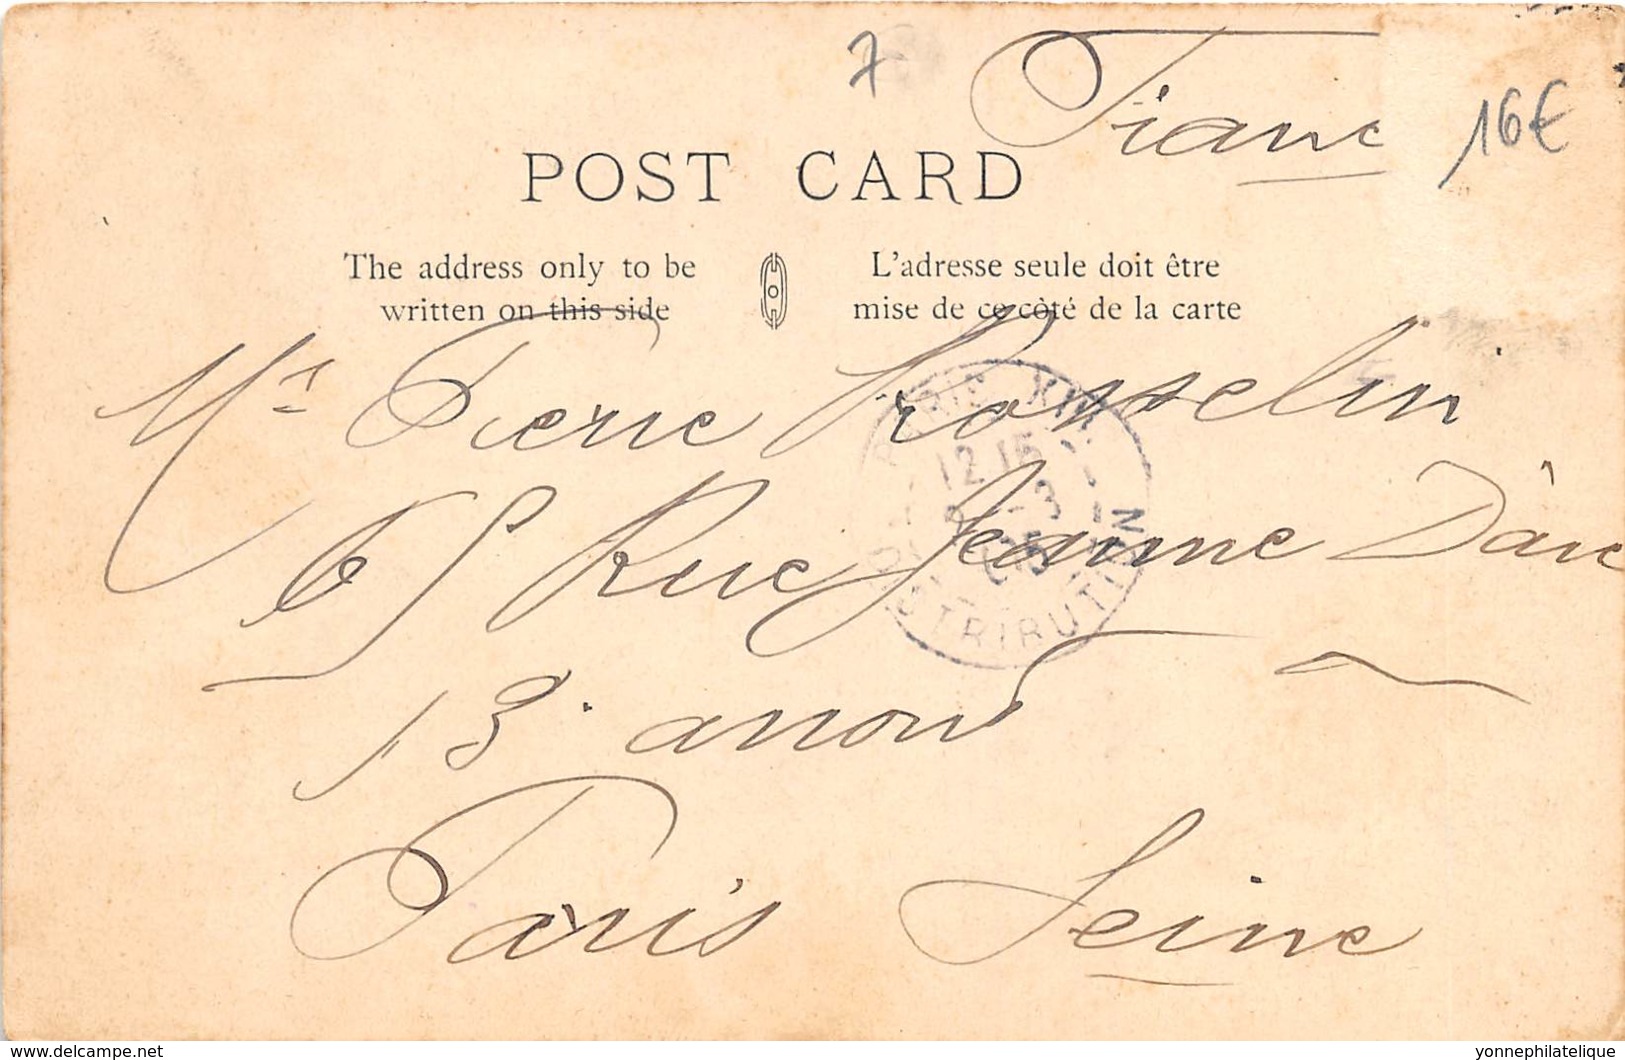 7
Franc
16€
POST CARD
The address only to be
written on this side
L'adresse seule doit être
mise de ce còté de la carte
Mr Pierre Rosselin
65 Rue Jeanne D'arc
13. arron
Paris Seine
PARIS XIII
12 15
3
05
DISTRIBUTION
www.delcampe.net
yonnephilatelique